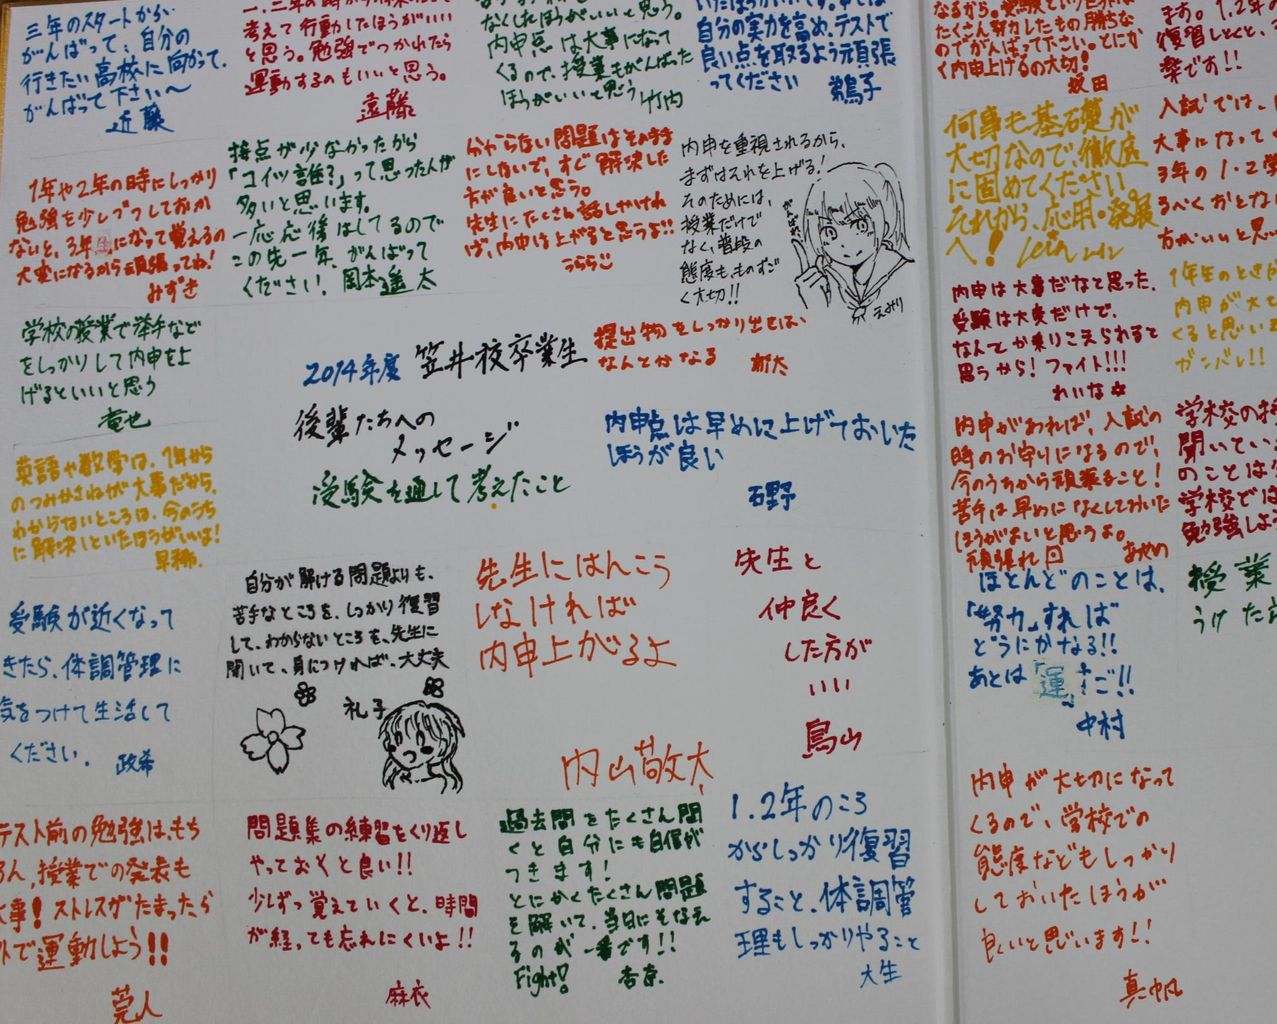 三年のスタートから
がんばって、自分の
行きたい高校に向かって、
がんばって下さい〜
近藤
考えて行動したほうがいい
と思う。勉強でつかれたら
運動するのもいいと思う。
遠藤
なくしたほうがいいと思う。
内申点は大事になって
くるので、授業もがんばった
ほうがいいと思う
竹内
自分の実力を高め、テストで
良い点を取るよう頑張
ってください
鵜子
たくさん努力したもの勝ちな
のでがんばって下さい。とにか
く内申上げるの大切!
坂田
ます。1.2年の
復習しとくと、
楽です!!
1年や2年の時にしっかり
勉強を少しづつしておか
ないと、3年生になって覚えるの
大変になるから頑張ってね!
みずき
接点が少なかったから
「コイツ誰?」って思った人が
多いと思います。
一応応援はしてるので
この先一年、がんばって
ください。岡本遥太
分からない問題はそのまま
にしないで、すぐ解決した
方が良いと思う。
先生にたくさん話しかけれ
ば、内申は上がると思うよ!!
うららこ
内申を重視されるから、
まずはそれを上げる!
そのためには、
授業だけで
なく、普段の
態度も、ものすご
く大切!!
がんばれ
えみり
何事も基礎が
大切なので、徹底
に固めてください。
それから、応用・発展
へ!
入試では、
大事になって
3年の1・2学
るべくおとな
方がいいと思い
学校の授業で挙手など
をしっかりして内申を上
げるといいと思う
竜也
2014年度 笠井校卒業生
後輩たちへの
メッセージ
受験を通して考えたこと
提出物をしっかり出せば、
なんとかなる
新太
内申点は早めに上げておいた
ほうが良い
石野
内申は大事だなと思った。
受験は大変だけど、
なんとか乗りこえられると
思うから!ファイト!!!
れいな☆
1年生のときか
内申が大
くると思いま
ガンバレ!!
英語や数学は、1年から
のつみかさねが大事だから、
わからないところは、今のうち
に解決しといたほうがいいよ!
早稀.
内申があれば、入試の
時のお守りになるので、
今のうちから頑張ること!
苦手は早めになくしてみいた
ほうがよいと思うよ。
頑張れ回
あやめ
学校の授
聞いてい
のことは
学校では
勉強しよう
受験が近くなって
きたら、体調管理に
気をつけて生活して
ください。
政希
自分が解ける問題よりも、
苦手なところを、しっかり復習
して、わからないところを、先生に
聞いて、身につければ、大丈夫
礼子
先生にはんこう
しなければ
内申上がるよ
内山敬大
先生と
仲良く
した方が
いい
鳥山
ほとんどのことは、
「努力」すれば
どうにかなる!!
あとは「運」まご!!
中村
授業
うけた
テスト前の勉強は、もち
ろん、授業での発表も
大事!ストレスがたまったら
外で運動しよう!!
莞人
問題集の練習をくり返し
やっておくと良い!!
少しずつ覚えていくと、時間
が経っても忘れにくいよ!!
麻衣
過去問をたくさん聞
くと自分にも自信が
つきます!
とにかくたくさん問題
を解いて、当日にそなえ
るのが一番です!!
Fight!
杏奈.
1.2年のころ
からしっかり復習
すること、体調管
理もしっかりやること
大生
内申が大切になって
くるので、学校での
態度などもしっかり
しておいたほうが
良いと思います!!
真帆